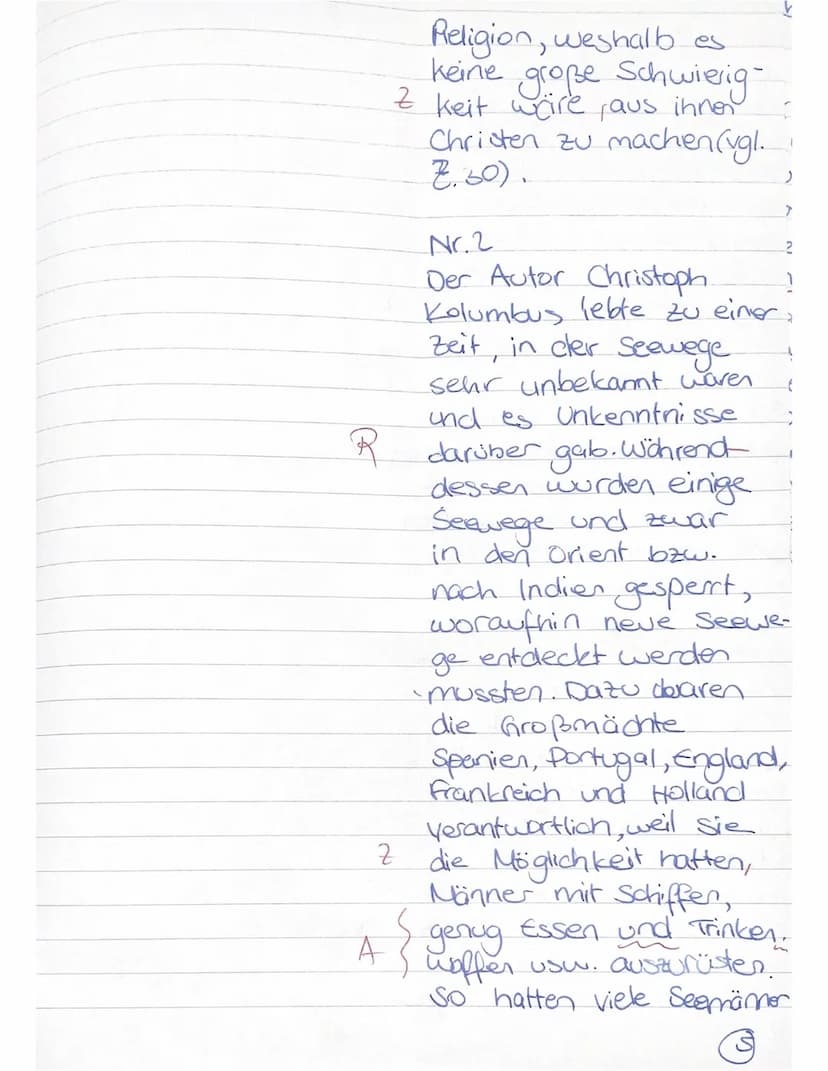 Religion, weshalb es
keine große Schwierig-
Z keit wäre, aus ihnen
Christen zu machen (vgl.
Z. 30).
Nr. 2
Der Autor Christoph
Kolumbus lebte zu einer
Zeit, in der Seewege
sehr unbekannt waren
und es Unkenntnisse
R darüber gab. Während
dessen wurden einige
Seewege und zwar
in den Orient bzw.
nach Indien gesperrt,
woraufhin neue Seewe-
ge entdeckt werden
mussten. Dazu waren
die Großmächte
Spanien, Portugal, England,
Frankreich und Holland
verantwortlich, weil sie
Z die Möglichkeit hatten,
Männer mit Schiffen,
genug Essen und Trinken,
A Waffen usw. auszurüsten.
So hatten viele Seemänner
5